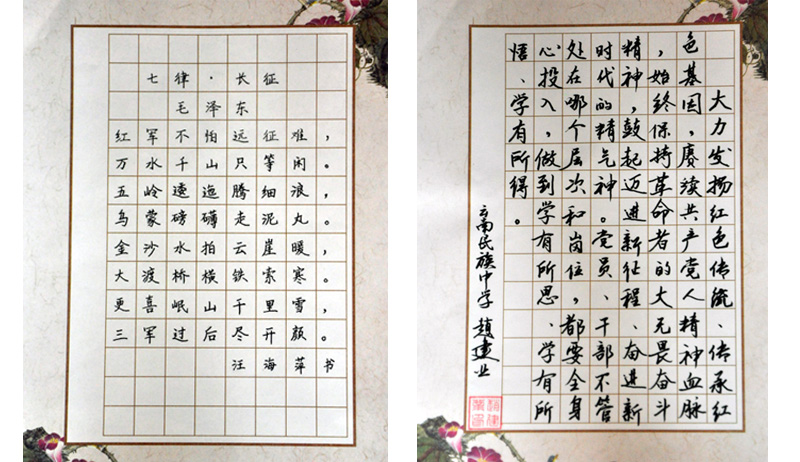 七律·长征
毛泽东
红军不怕远征难，
万水千山只等闲。
五岭逶迤腾细浪，
乌蒙磅礴走泥丸。
金沙水拍云崖暖，
大渡桥横铁索寒。
更喜岷山千里雪，
三军过后尽开颜。
汪海萍书
大力发扬红色传流、传承红
色基因，赓续共产党人精神血脉
，始终保持革命者的大无畏奋斗
精神，鼓起迈进新征程、奋进新
时代的精气神。党员、干部不管
处在哪个层次和岗位，都要全身
心投入，做到学有所思、学有所
悟、学有所得。
云南民族中学 趙建业